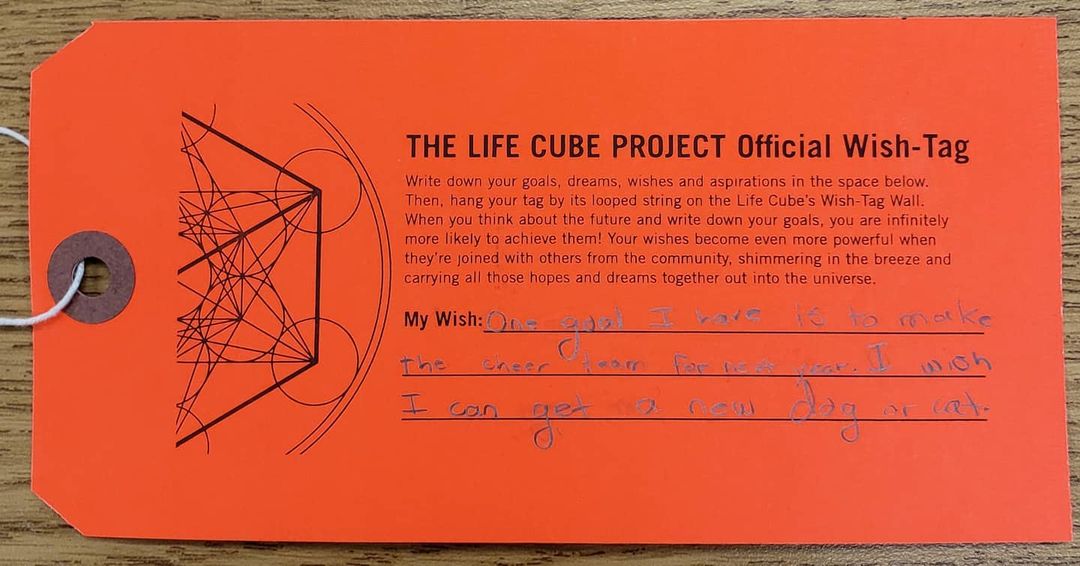 THE LIFE CUBE PROJECT Official Wish-Tag
Write down your goals, dreams, wishes and aspirations in the space below.
Then, hang your tag by its looped string on the Life Cube's Wish-Tag Wall.
When you think about the future and write down your goals, you are infinitely
more likely to achieve them! Your wishes become even more powerful when
they're joined with others from the community, shimmering in the breeze and
carrying all those hopes and dreams together out into the universe.
My Wish: One goal I have is to make
the cheer team for next year. I wish
I can get a new dog or cat.